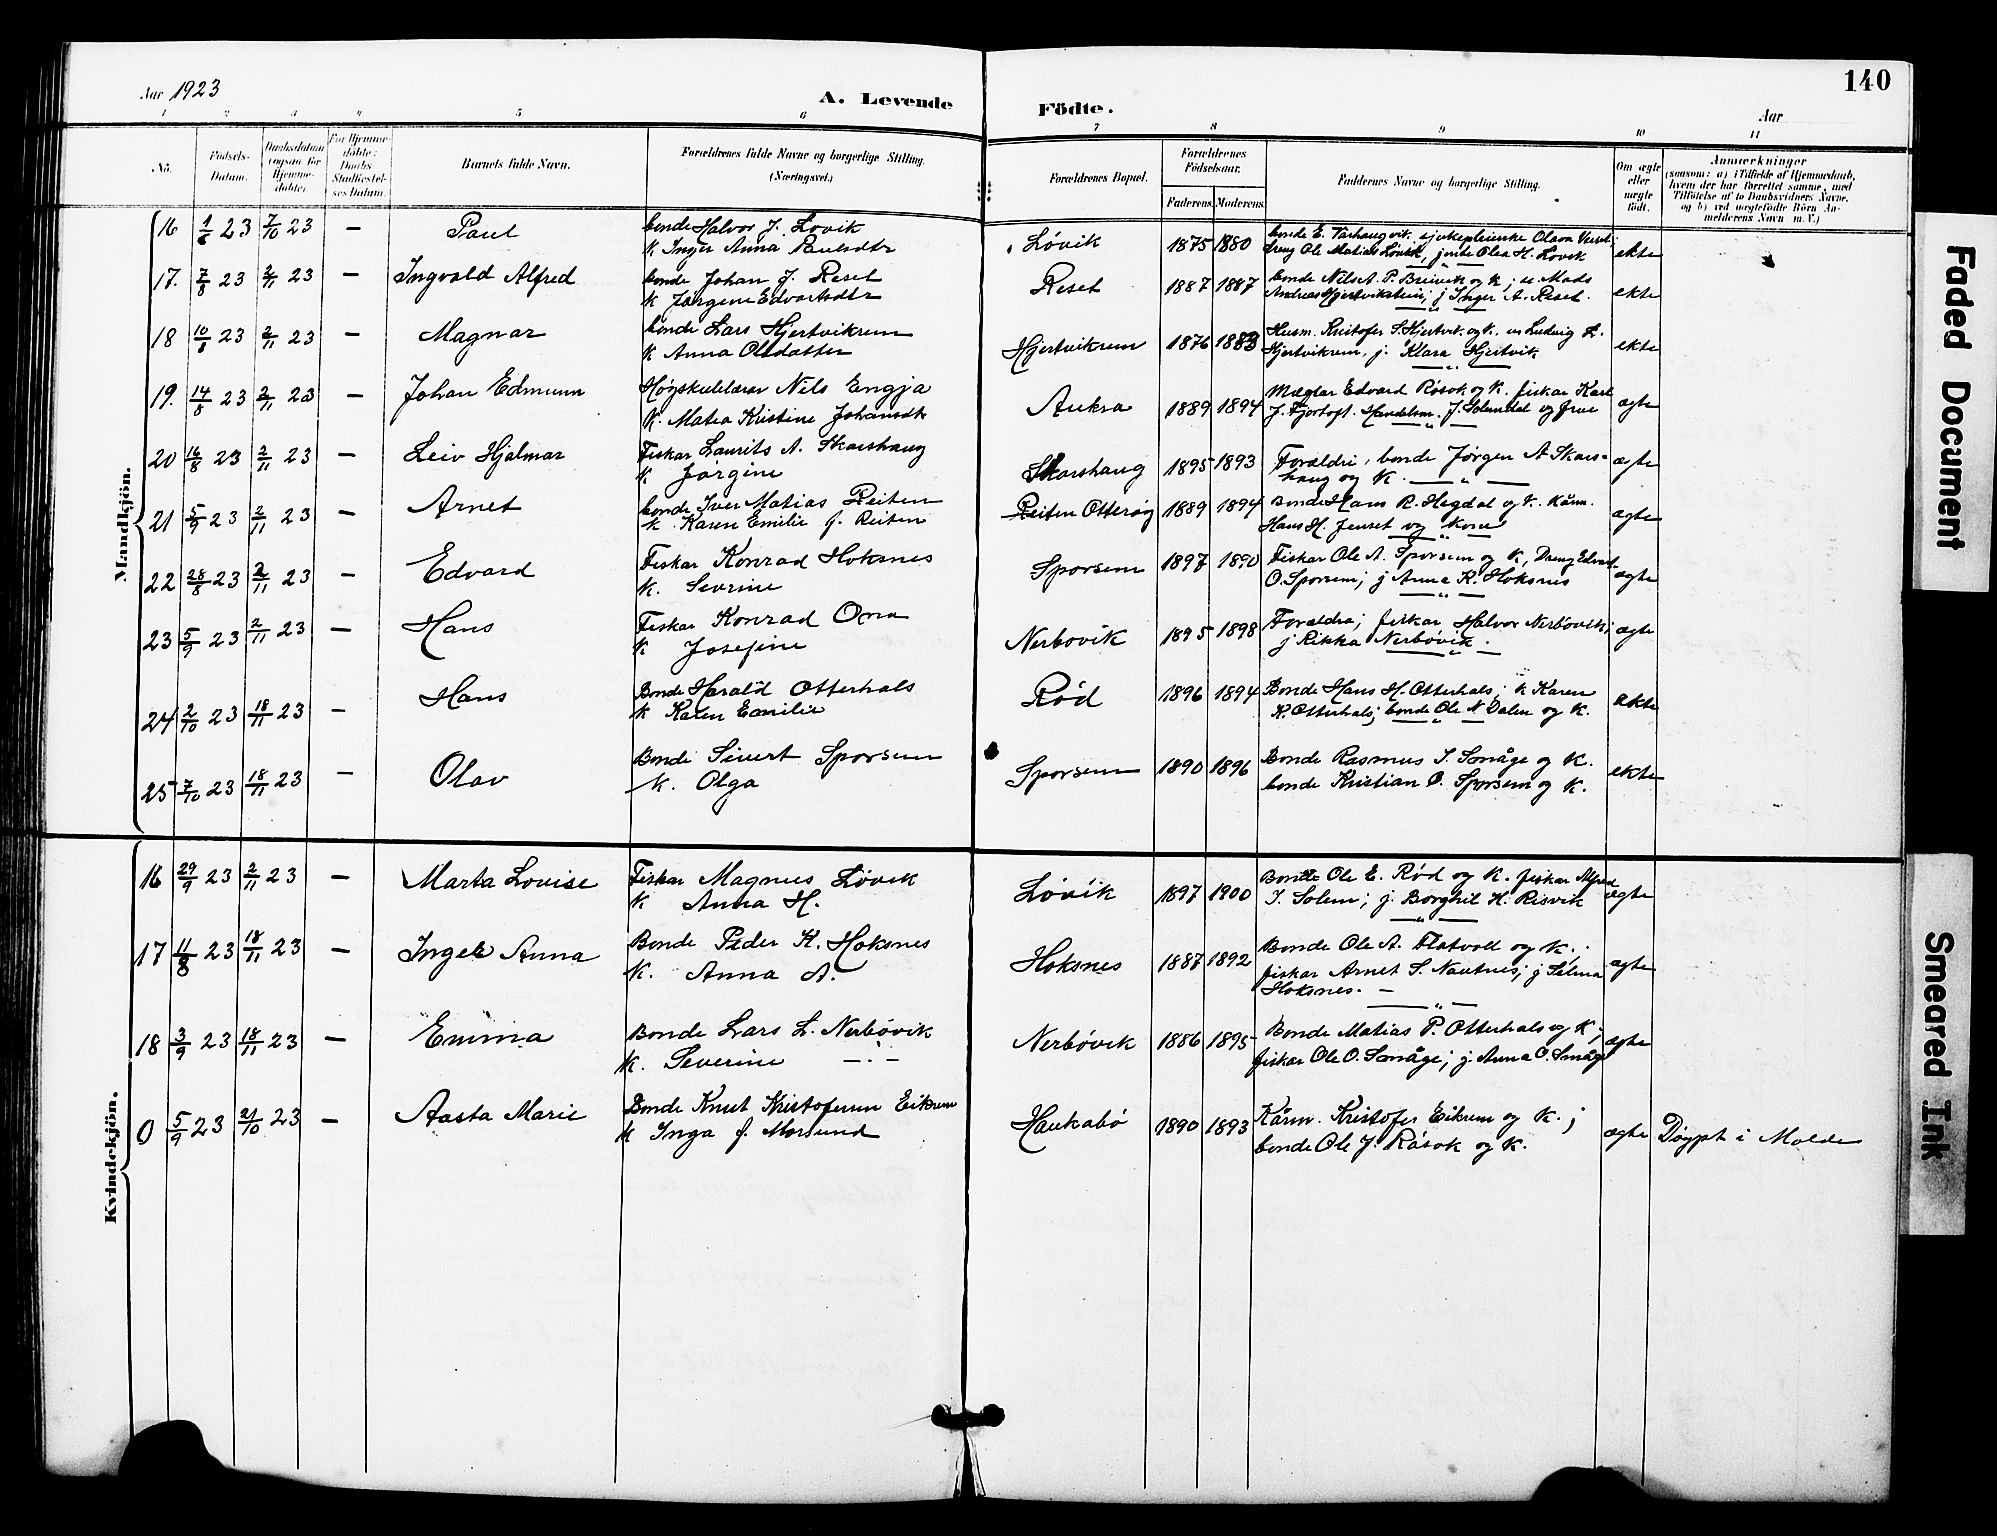 140
Aar 1923
A. Levende Födte.
Aar
1 2 3 4 5 6 7 8 9 10 11
No.
Födsels-Datum.
Daabsdatum (ogsaa for Hjemme-døbte).
For Hjemme-døbte: Daabs-Stadfæstel-ses Datum.
Barnets fulde Navn.
Forældrenes fulde Navne og borgerlige Stilling.
(Næringsvei.)
Forældrenes Bopæl.
Forældrenes Födselsaar.
Faderens. Moderens.
Faddernes Navne og borgerlige Stilling.
Om ægte eller uægte født.
Anmærkninger
(saasom: a) i Tilfælde af Hjemmedaab,
hvem der har forrettet samme, med
Tilföielse af to Daabsvidners Navne,
og b) ved uægtefödte Börn An-
melderens Navn m. V.)
Mandkjön.
16 1/8 23 7/10 23 — Paul bonde Halvor J. Lovik Løvik 1875 1880 bonde E. Varhaugvik, sjukepleierske Olava
K. Inger Anna Paulsdtr dreng Ole Matias Lovik, jente Olea H. Lovik ekte
17. 7/8 23 2/11 23 — Ingvald Alfred bonde Johan J. Reset Reset 1887 1887 bonde Nils P. Breivik og K; u. Mads
K Jørgine Edvartsdtr Andreas Hjertvikstein; j Inger A. Reset. ekte
18 10/8 23 2/11 23 — Magnar bonde Lars Hjertvikrem Hjertvikrem 1876 1883 Husm. Kristofer S. Hjertvik og K. Ludvig L.
K Anna Olsdatter Hjertvikrem, j. Klara Hjertvik ekte
19. 14/8 23 2/11 23 — Johan Edmunn Høgskulelærar Nils Engja Aukra 1889 1894 Mægler Edvard Røsok og K. fiskar Karl
K. Matea Kristine Johansdtr J. Fjørtoft. Handelsm. J. Solemdal og frue ægte
20 16/8 23 2/11 23 — Leiv Hjalmar Fiskar Laurits A. Skarshaug Skarshaug 1895 1893 Forældri, bonde Jørgen A Skars-
K. Jørgine haug og K. ægte
21 5/9 23 2/11 23 — Arnet bonde Iver Matias Reiten Reiten Otterøy 1889 1894 Bonde Hans R. Hegdal og K. Kårm.
K. Karen Emilie f. Reiten Hans H. Jenset og kone ægte
22 28/8 23 2/11 23 — Edvard Fiskar Konrad Hoksnes Sporsem 1897 1890 Fiskar Ole A. Sporsem og K, Dreng Edvart
K. Sevrine O. Sporsem; j Anna K. Hoksnes ægte
23 5/9 23 2/11 23 — Hans Fiskar Konrad Ona Nerbovik 1895 1898 Forældra; fiskar Halvor Nerbøvik;
K Josefine j Rikka Nerbøvik. ægte
24 2/10 23 18/11 23 — Hans Bonde Harald Otterhals Rød 1896 1894 Bonde Hans H. Otterhals; K Karen
K Karen Emilie K. Otterhals; bonde Ole N Dalen og K. ekte
25 7/10 23 18/11 23 — Olav Bonde Sivert Sporsem Sporsem 1890 1896 Bonde Rasmus I. Småge og K.
K. Olga bonde Kristian O. Sporsem og K. ekte
Kvindekjön.
16 29/9 23 2/11 23 — Marta Lovise Fiskar Magnus Løvik Løvik 1897 1900 Bonde Ole E. Rød og K. fiskar Alfred
K Anna H. I. Solem; j. Borghil H. Risvik ægte
17 11/8 23 18/11 23 — Inger Anna Bonde Peder K. Hoksnes Hoksnes 1887 1892 Bonde Ole A. Flatvoll og K.;
K. Anna A. fiskar Arnet S. Nautnes; j Selma ægte
Hoksnes. —
18 3/9 23 18/11 23 — Emma Bonde Lars L. Nerbøvik Nerbövik 1886 1895 Bonde Matias P. Otterhals og K;
K. Severine fiskar Ole O. Småge; j Anna O. Småge ægte
0 5/9 23 21/10 23 — Aasta Marie Bonde Knut Kristofersen Eikrem Haukabø 1890 1893 Kårm. Kristofer Eikrem og K.;
K Inga f. Morsund bonde Ole J. Råsok og K. ægte Døypt i Molde
Faded Document
Smeared Ink